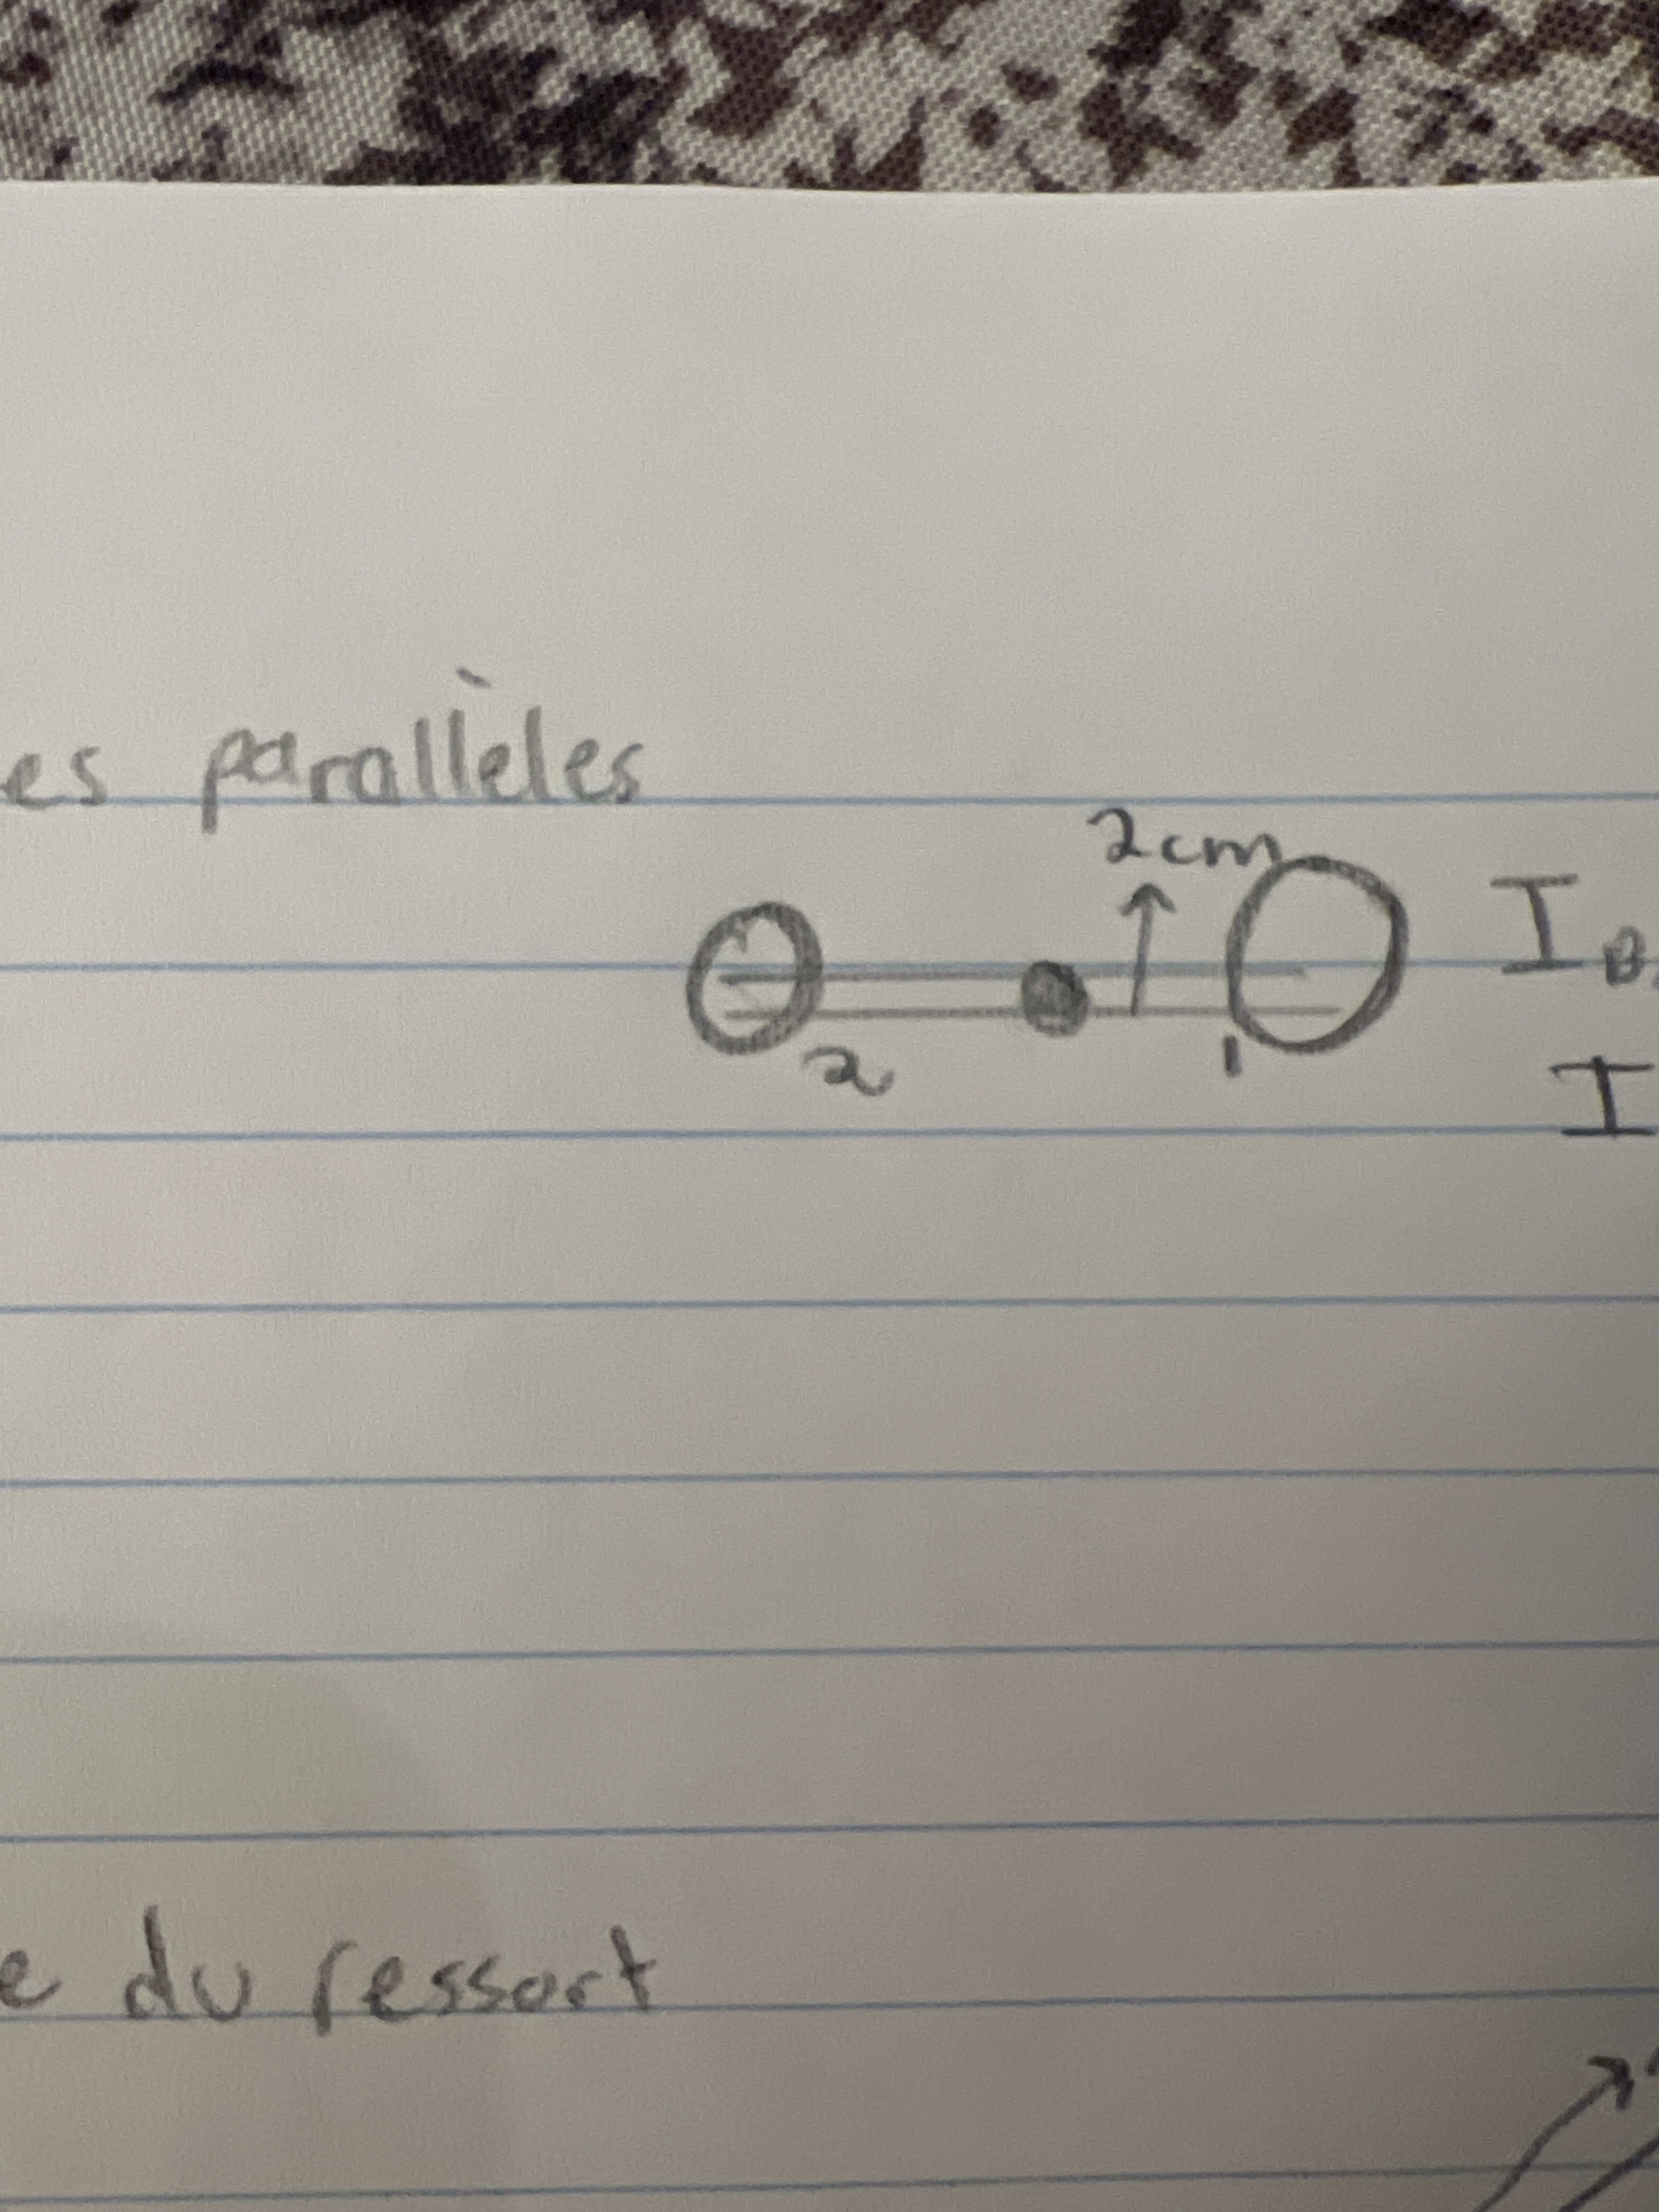 es parallèles
2cm
I
2
1
I
e du ressort